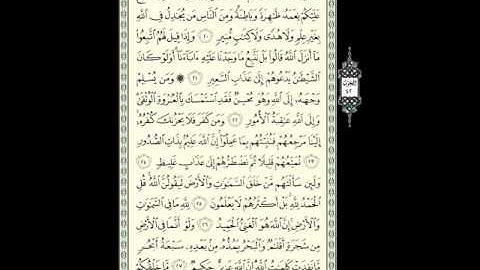 عَلَيْكُمْ نِعَمَهُۥ ظَٰهِرَةً وَبَاطِنَةً ۗ وَمِنَ ٱلنَّاسِ مَن يُجَٰدِلُ فِى ٱللَّهِ
بِغَيْرِ عِلْمٍ وَلَا هُدًى وَلَا كِتَٰبٍ مُّنِيرٍ ٢٠ وَإِذَا قِيلَ لَهُمُ ٱتَّبِعُوا۟
مَآ أَنزَلَ ٱللَّهُ قَالُوا۟ بَلْ نَتَّبِعُ مَا وَجَدْنَا عَلَيْهِ ءَابَآءَنَآ ۚ أَوَلَوْ كَانَ
ٱلشَّيْطَٰنُ يَدْعُوهُمْ إِلَىٰ عَذَابِ ٱلسَّعِيرِ ٢١ ۞ وَمَن يُسْلِمْ
وَجْهَهُۥٓ إِلَى ٱللَّهِ وَهُوَ مُحْسِنٌ فَقَدِ ٱسْتَمْسَكَ بِٱلْعُرْوَةِ ٱلْوُثْقَىٰ ۗ
وَإِلَى ٱللَّهِ عَٰقِبَةُ ٱلْأُمُورِ ٢٢ وَمَن كَفَرَ فَلَا يَحْزُنكَ كُفْرُهُۥٓ ۚ
إِلَيْنَا مَرْجِعُهُمْ فَنُنَبِّئُهُم بِمَا عَمِلُوٓا۟ ۚ إِنَّ ٱللَّهَ عَلِيمٌۢ بِذَاتِ ٱلصُّدُورِ
٢٣ نُمَتِّعُهُمْ قَلِيلًا ثُمَّ نَضْطَرُّهُمْ إِلَىٰ عَذَابٍ غَلِيظٍ ٢٤
وَلَئِن سَأَلْتَهُم مَّنْ خَلَقَ ٱلسَّمَٰوَٰتِ وَٱلْأَرْضَ لَيَقُولُنَّ ٱللَّهُ ۚ قُلِ
ٱلْحَمْدُ لِلَّهِ ۚ بَلْ أَكْثَرُهُمْ لَا يَعْلَمُونَ ٢٥ لِلَّهِ مَا فِى ٱلسَّمَٰوَٰتِ
وَٱلْأَرْضِ ۚ إِنَّ ٱللَّهَ هُوَ ٱلْغَنِىُّ ٱلْحَمِيدُ ٢٦ وَلَوْ أَنَّمَا فِى ٱلْأَرْضِ
مِن شَجَرَةٍ أَقْلَٰمٌ وَٱلْبَحْرُ يَمُدُّهُۥ مِنۢ بَعْدِهِۦ سَبْعَةُ أَبْحُرٍ
مَّا نَفِدَتْ كَلِمَٰتُ ٱللَّهِ ۗ إِنَّ ٱللَّهَ عَزِيزٌ حَكِيمٌ ٢٧ مَّا خَلْقُكُمْ
الحزب
٤٢